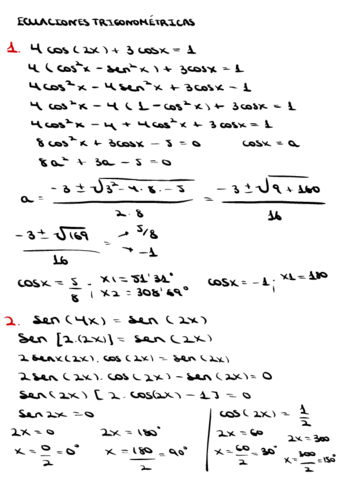 ECUACIONES TRIGONOMÉTRICAS
1. 4 cos (2x) + 3 cosx = 1
4 (cos²x - sen²x) + 3cosx = 1
4cos²x - 4sen²x + 3cosx = 1
4 cos²x - 4 (1 - cos²x) + 3cosx = 1
4cos²x - 4 + 4cos²x + 3cosx = 1
8cos²x + 3cosx - 5 = 0 cosx = a
8a² + 3a - 5 = 0
a = -3 ± √3² - 4 · 8 · -5 / 2 · 8 = -3 ± √9 + 160 / 16
-3 ± √169 / 16 = → 5/8 → -1
cosx = 5/8 ; x1 = 51'31° x2 = 308'69° cosx = -1 ; x1 = 180
2. sen (4x) = sen (2x)
sen [2·(2x)] = sen (2x)
2senx(2x) · cos (2x) = sen (2x)
2sen (2x) · cos (2x) - sen (2x) = 0
sen (2x) [2 · cos(2x) - 1] = 0
sen 2x = 0 cos (2x) = 1/2
2x = 0 2x = 180° 2x = 60 2x = 300
x = 0/2 = 0° x = 180/2 = 90° x = 60/2 = 30° x = 300/2 = 150°